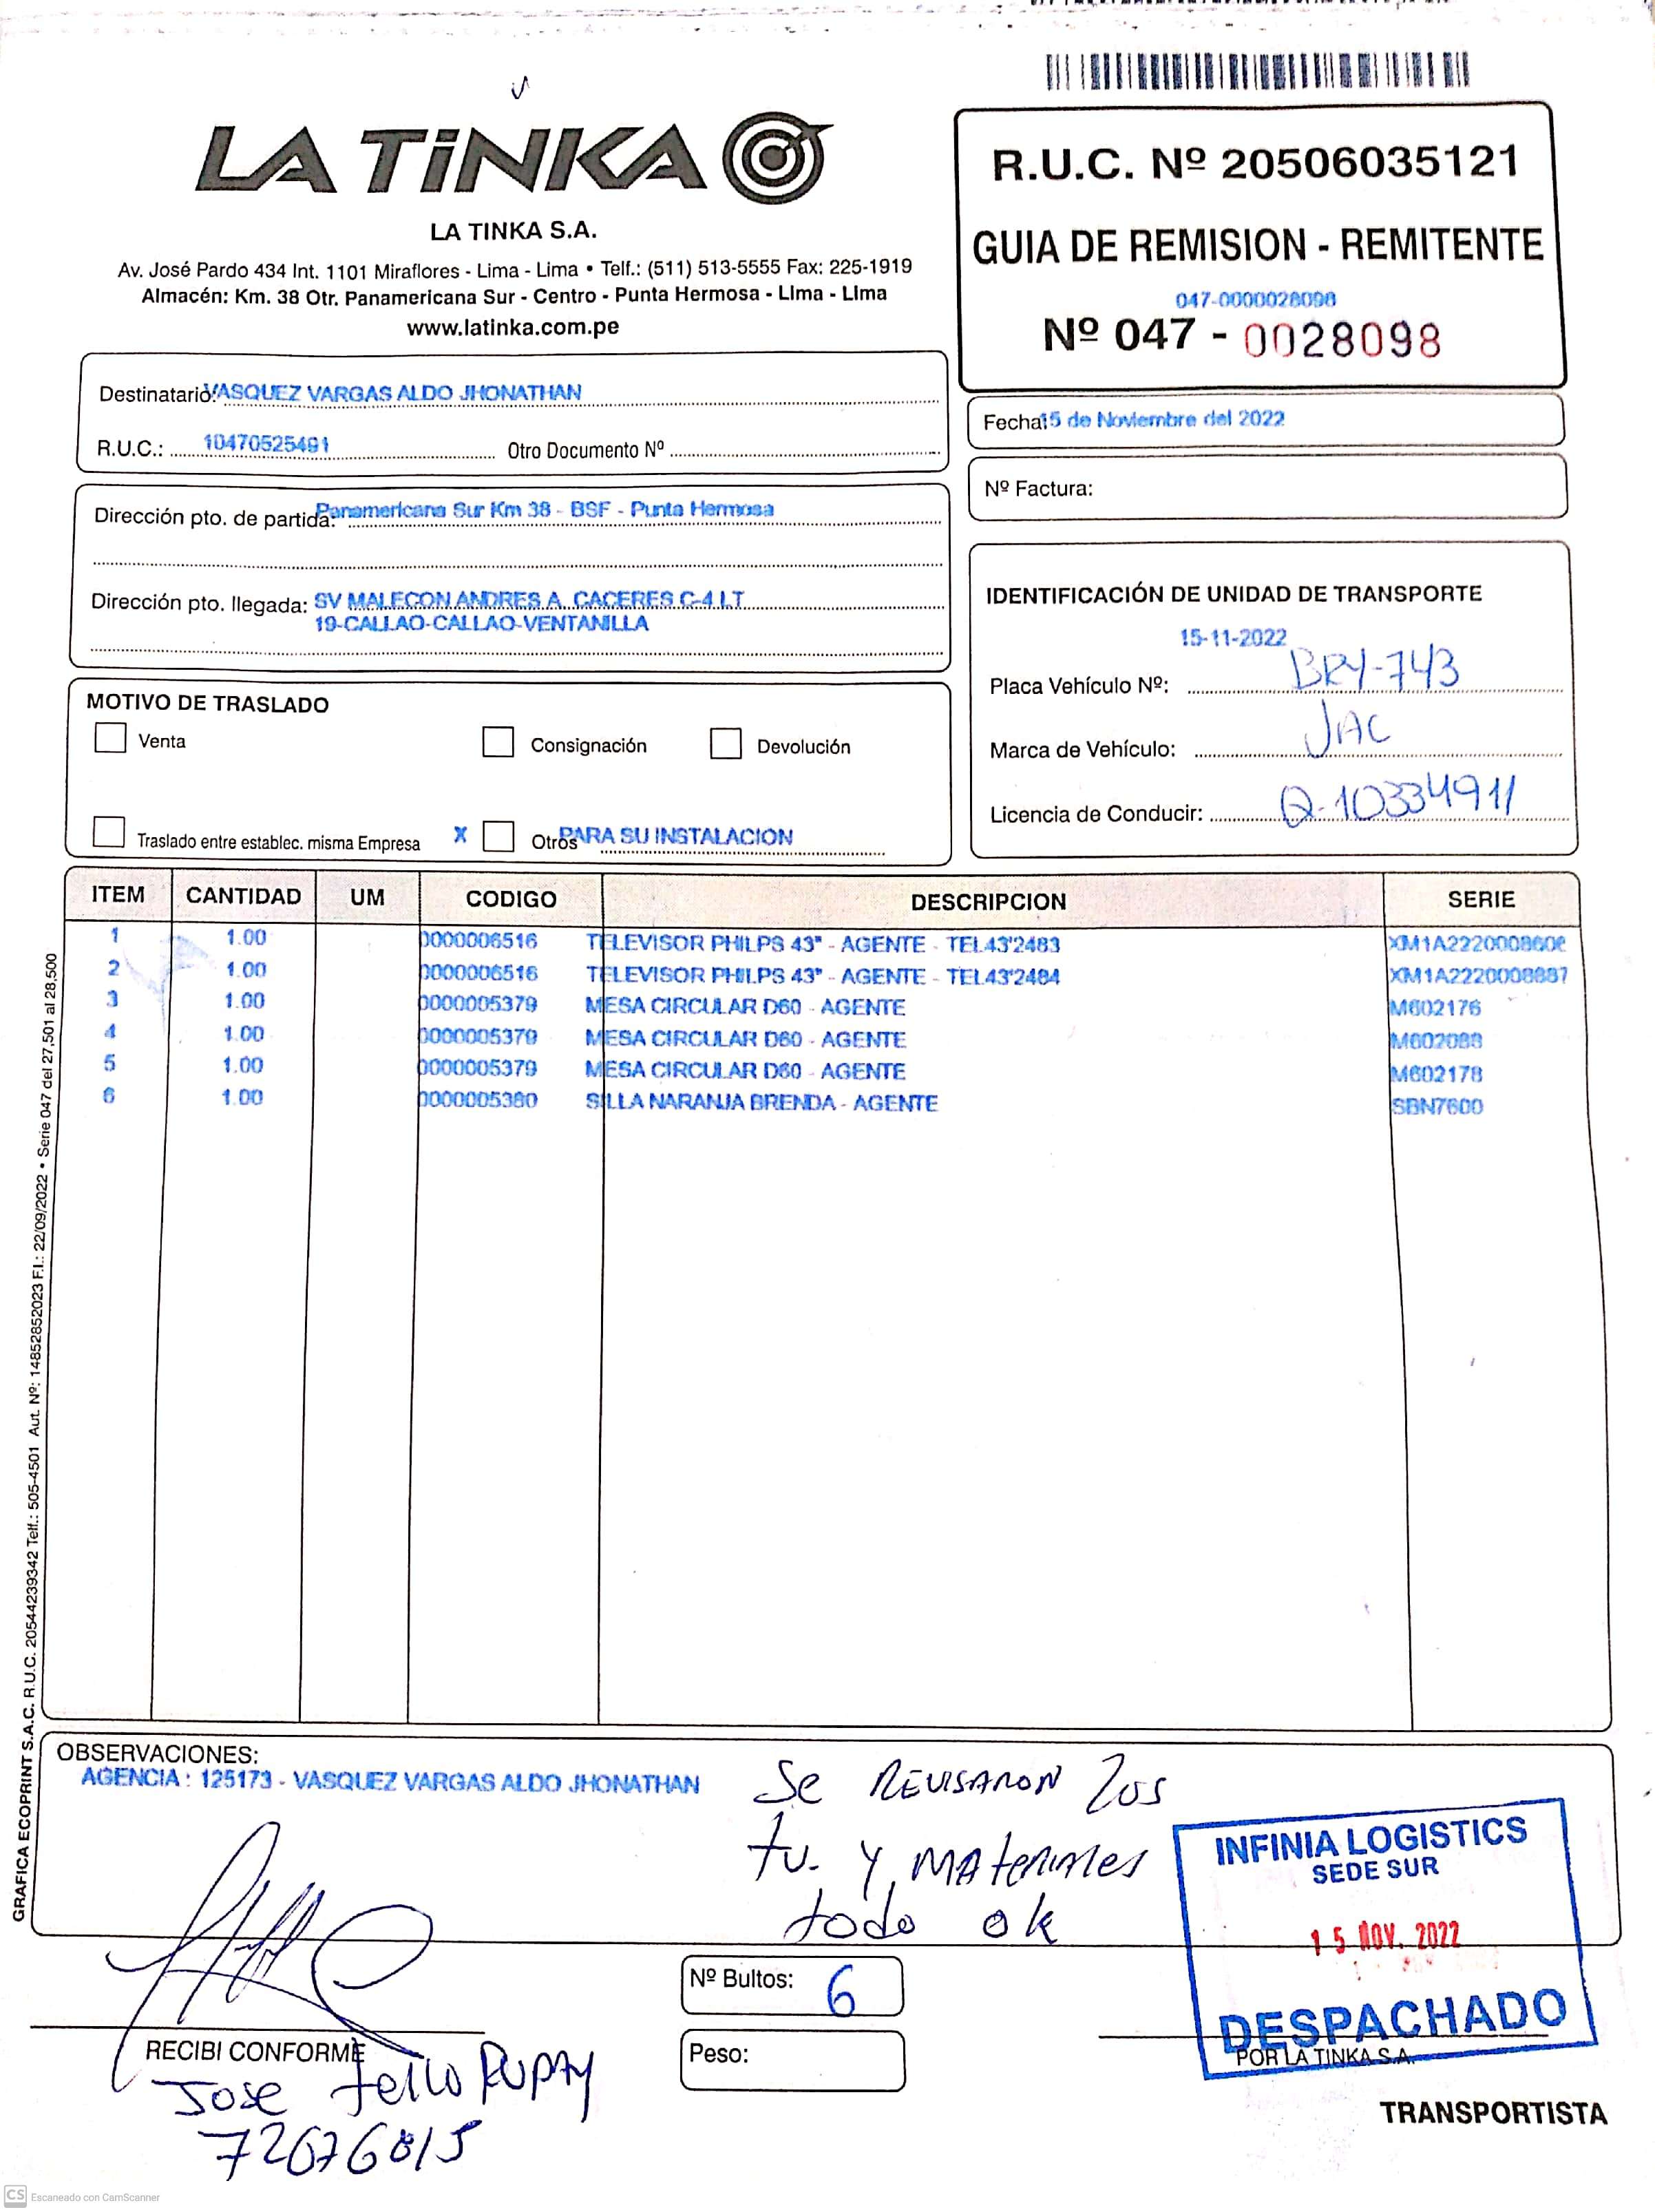 LA TiNKA
LA TINKA S.A.
Av. José Pardo 434 Int. 1101 Miraflores - Lima - Lima • Telf.: (511) 513-5555 Fax: 225-1919
Almacén: Km. 38 Otr. Panamericana Sur - Centro - Punta Hermosa - LIma - LIma
www.latinka.com.pe
R.U.C. Nº 20506035121
GUIA DE REMISION - REMITENTE
047-0000028098
Nº 047 - 0028098
Destinatario: VASQUEZ VARGAS ALDO JHONATHAN
R.U.C.: 10470525491 Otro Documento Nº
Fecha: 15 de Noviembre del 2022
Nº Factura:
Dirección pto. de partida: Panamericana Sur Km 38 - BSF - Punta Hermosa
Dirección pto. llegada: SV MALECON ANDRES A. CACERES C-4 LT
19-CALLAO-CALLAO-VENTANILLA
IDENTIFICACIÓN DE UNIDAD DE TRANSPORTE
15-11-2022
Placa Vehículo Nº: BRY-743
Marca de Vehículo: JAC
Licencia de Conducir: Q-10334911
MOTIVO DE TRASLADO
Venta Consignación Devolución
Traslado entre establec. misma Empresa X Otros PARA SU INSTALACION
ITEM CANTIDAD UM CODIGO DESCRIPCION SERIE
1 1.00 0000006516 TELEVISOR PHILPS 43" - AGENTE - TEL43'2483
2 1.00 0000006516 TELEVISOR PHILPS 43" - AGENTE - TEL43'2484 XM1A2220008887
3 1.00 0000005379 MESA CIRCULAR D60 - AGENTE M602176
4 1.00 0000005379 MESA CIRCULAR D60 - AGENTE M602088
5 1.00 0000005379 MESA CIRCULAR D60 - AGENTE M602178
6 1.00 0000005380 SILLA NARANJA BRENDA - AGENTE SBN7600
GRAFICA ECOPRINT S.A.C. R.U.C. 20544239342 Telf.: 505-4501 Aut. Nº: 14852852023 F.I.: 22/09/2022 • Serie 047 del 27,501 al 28,500
OBSERVACIONES:
AGENCIA : 125173 - VASQUEZ VARGAS ALDO JHONATHAN
Se REVISARON LOS
tv. y MAteriales
todo ok
INFINIA LOGISTICS
SEDE SUR
15 NOV. 2022
DESPACHADO
POR LA TINKA S.A.
Nº Bultos: 6
Peso:
RECIBI CONFORME
Jose Tello RUPAY
72676815
TRANSPORTISTA
CS Escaneado con CamScanner